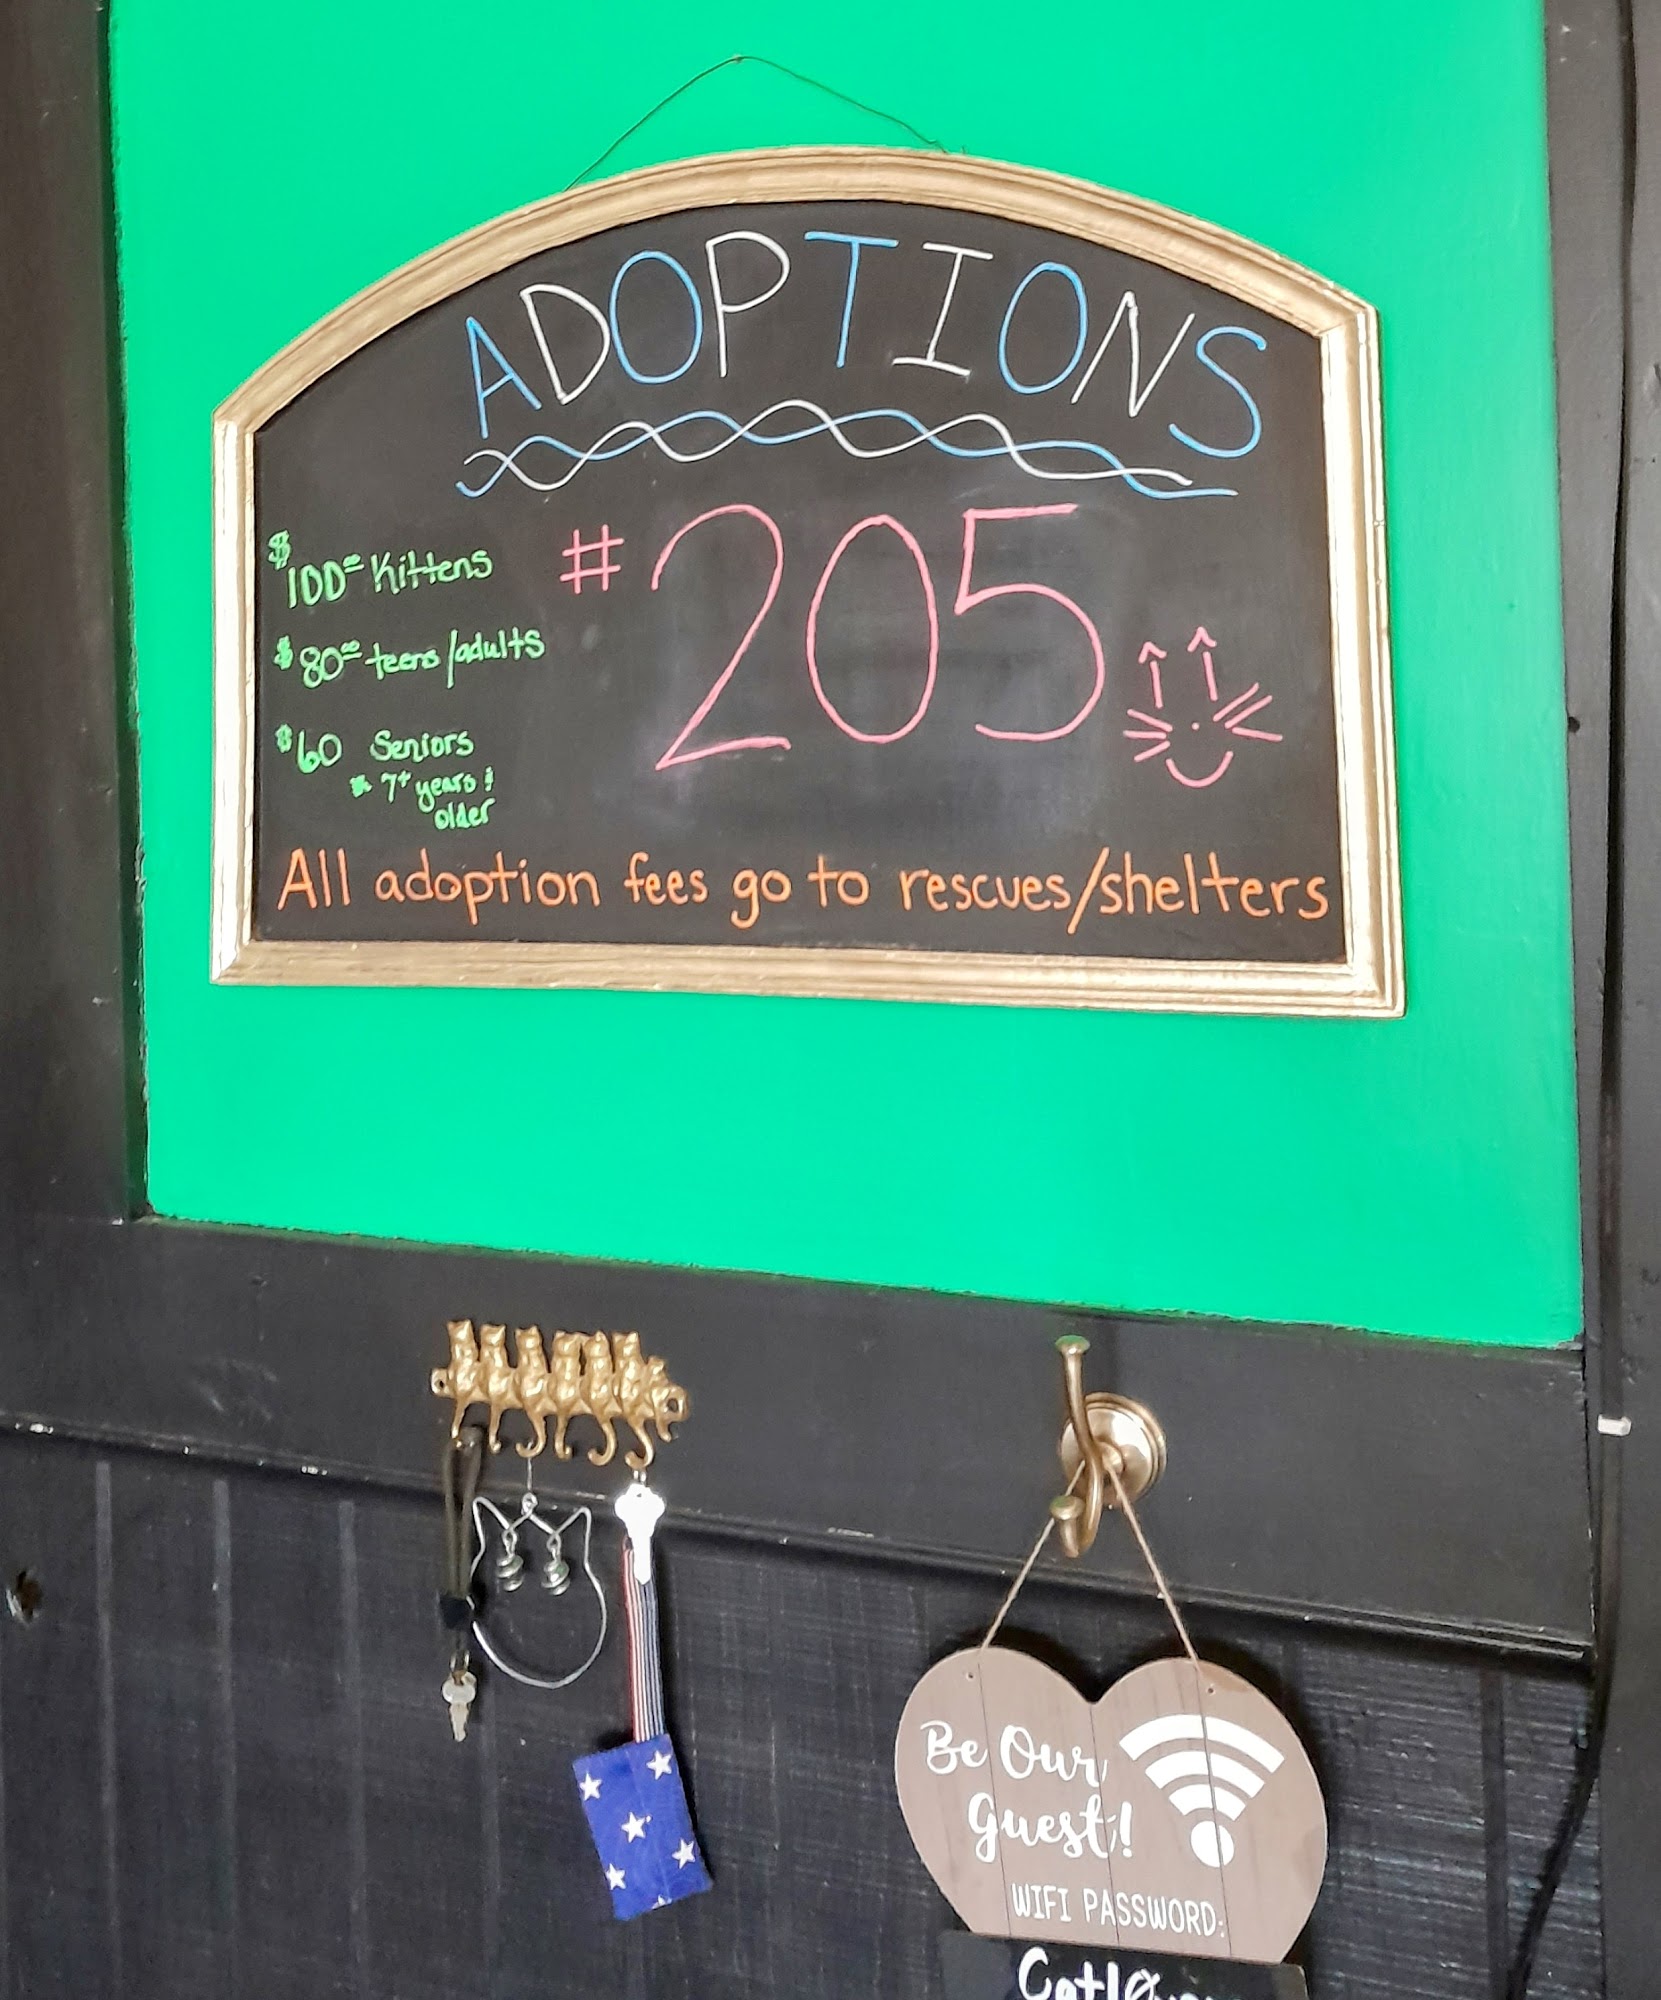 ADOPTIONS
$100.00 Kittens
#205
$80.00 teens/adults
$60 Seniors
7+ years &
older
All adoption fees go to rescues/shelters
Be Our
Guest!
WIFI PASSWORD: